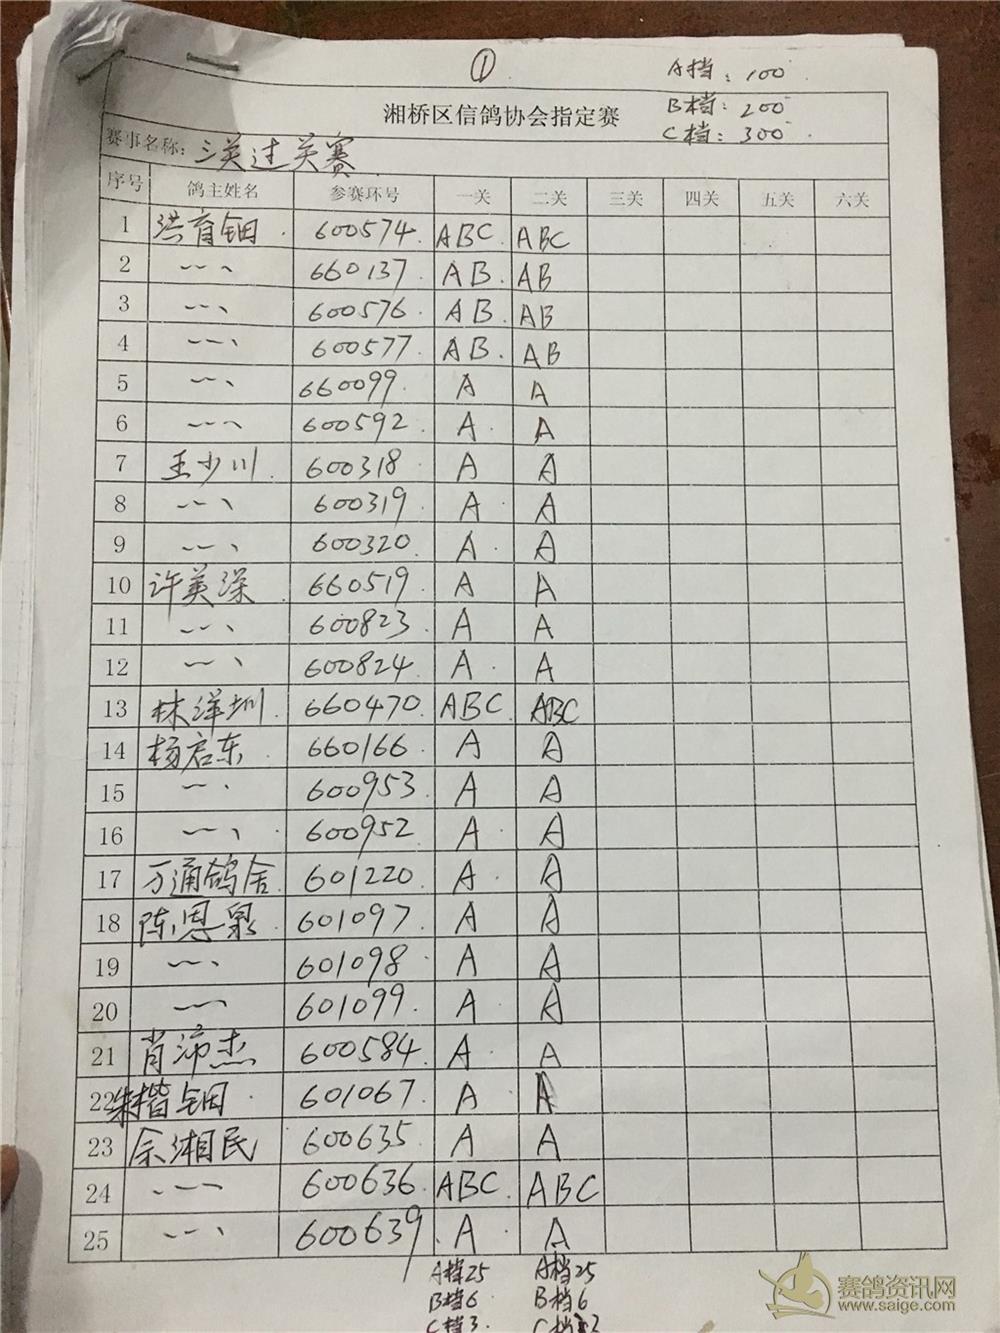 ①
A档：100
湘桥区信鸽协会指定赛 B档：200
C档：300
赛事名称：三关过关赛
序号 鸽主姓名 参赛环号 一关 二关 三关 四关 五关 六关
1 洪育钿 600574 ABC ABC
2 660137 AB AB
3 600576 AB AB
4 600577 AB AB
5 660099 A A
6 600592 A A
7 王少川 600318 A A
8 600319 A A
9 600320 A A
10 许英深 660519 A A
11 600823 A A
12 600824 A A
13 林洋圳 660470 ABC ABC
14 杨启东 660166 A A
15 600953 A A
16 600952 A A
17 万通鸽舍 601220 A A
18 陈恩泉 601097 A A
19 601098 A A
20 601099 A A
21 肖沛杰 600584 A A
22 朱楷钿 601067 A A
23 余湘民 600635 A A
24 600636 ABC ABC
25 600639 A A
A档25 A档25
B档6 B档6
C档3 C档3
赛鸽资讯网
www.saige.com